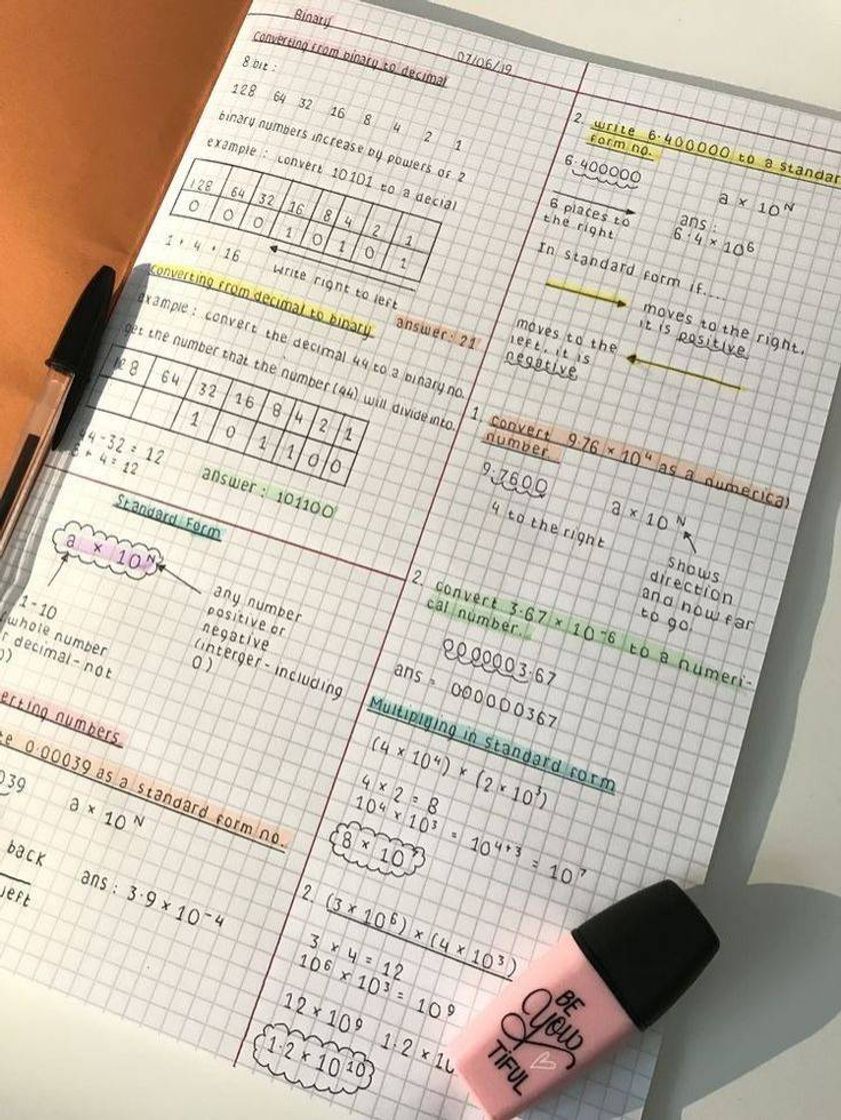 Binary
07/06/19
Converting from binary to decimal
8 bit :
128 64 32 16 8 4 2 1
binary numbers increase by powers of 2
example : convert 10101 to a decial
128 64 32 16 8 4 2 1
0 0 0 1 0 1 0 1
1 + 4 + 16
write right to left
answer · 21
Converting from decimal to binary
example : convert the decimal 44 to a binary no.
get the number that the number (44) will divide into.
128 64 32 16 8 4 2 1
1 0 1 1 0 0
44 - 32 = 12
8 + 4 = 12
answer : 101100
Standard Form
a × 10ᴺ
1-10
whole number
decimal - not
0)
any number
positive or
negative
(interger - including
0)
erting numbers
te 0·00039 as a standard form no.
039
a × 10ᴺ
back
left
ans : 3·9 × 10⁻⁴
2. write 6·400000 to a standar
form no.
6·400000
a × 10ᴺ
6 places to
the right
ans :
6·4 × 10⁶
In standard form if....
moves to the right,
it is positive
moves to the
left, it is
negative
1. convert 9·76 × 10⁴ as a numerical
number.
9·7600
a × 10ᴺ
4 to the right
shows
direction
and how far
to go.
2. convert 3·67 × 10⁻⁶ to a numeri-
cal number.
0000003·67
ans = 000000367
Multiplying in standard form
(4 × 10⁴) × (2 × 10³)
4 × 2 = 8
10⁴ × 10³ = 10⁴⁺³ = 10⁷
8 × 10⁷
2. (3 × 10⁶) × (4 × 10³)
3 × 4 = 12
10⁶ × 10³ = 10⁹
12 × 10⁹ 1·2 × 1
1·2 × 10¹⁰
BE
You
TIFUL